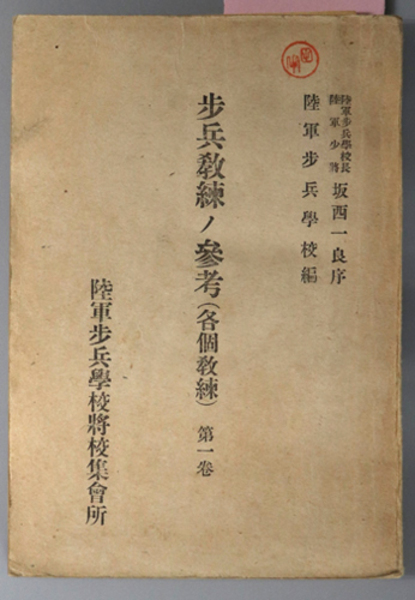 陸軍步兵學校長
陸軍少將
坂西一良序
陸軍步兵學校編
步兵敎練ノ參考(各個敎練) 第一卷
陸軍步兵學校將校集會所